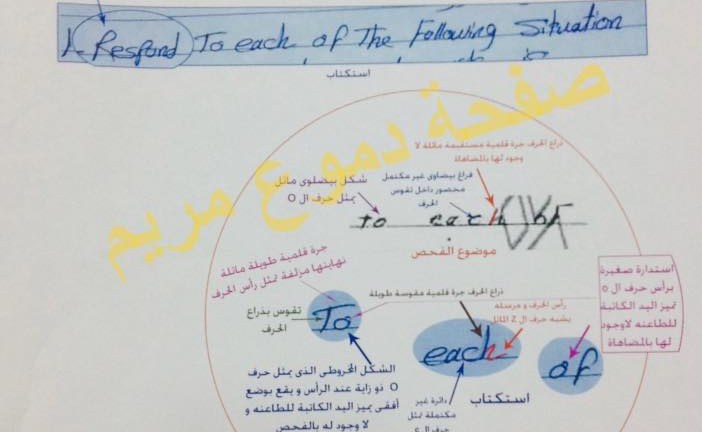 1- Respond To each of The Following Situation
استكتاب
صفحة دموع مريم
ذراع الحرف جرة قلمية مستقيمة مائلة لا
وجود لها بالمضاهاة
فراغ بيضاوى غير مكتمل
محصور داخل تقوس
الحرف
شكل بيضاوى مائل
يمثل حرف ال O
to each of
موضوع الفحص
جرة قلمية طويلة مائلة
نهايتها مزلفة تمثل رأس الحرف
ذراع الحرف جرة قلمية مقوسة طويلة
رأس الحرف و مرسله
يشبه حرف ال Z المائل
استدارة صغيرة
برأس حرف ال o
تميز اليد الكاتبة
للطاعنه لاوجود
لها بالمضاهاة
تقوس بذراع
الحرف
To each of
الشكل المخروطى الذى يمثل حرف
O ذو زاية عند الرأس و يقع بوضع
أفقى يميز اليد الكاتبة للطاعنه و
لا وجود له بالفحص
دائرة غير
مكتملة تمثل
حرف ال
استكتاب